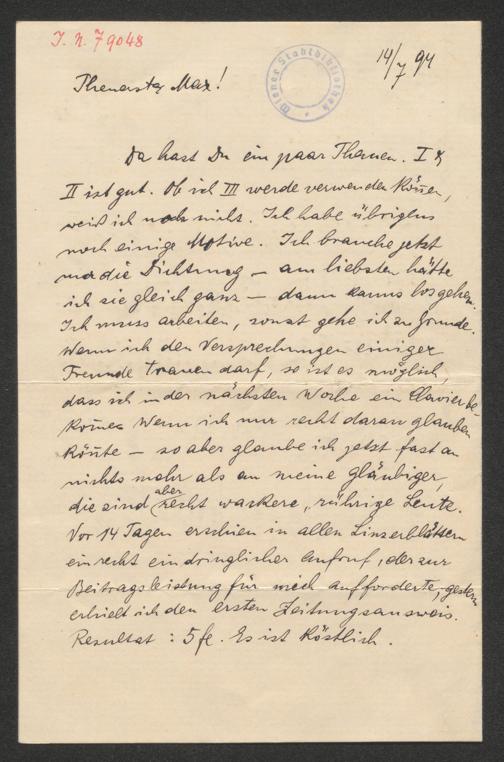 I. N. 79048
Wiener Stadtbibliothek
14/7 94
Theuerster Max!
Da hast Du ein paar Themen. I &
II ist gut. Ob ich III werde verwenden können,
weiß ich noch nicht. Ich habe übrigens
noch einige Motive. Ich brauche jetzt
nur die Dichtung – am liebsten hätte
ich sie gleich ganz – dann kanns losgehen.
Ich muss arbeiten, sonst gehe ich zu Grunde.
Wenn ich den Versprechungen einiger
Freunde trauen darf, so ist es möglich,
dass ich in der nächsten Woche ein Clavier be-
komme. Wenn ich nur recht daran glauben
könnte – so aber glaube ich jetzt fast an
nichts mehr als an meine gläubiger,
die sind aber recht wackere, rührige Leute.
Vor 14 Tagen erschien in allen Linzerblättern
ein recht eindringlicher Aufruf, der zur
Beitragsleistung für mich aufforderte, gestern
erhielt ich den ersten Zeitungsausweis.
Resultat : 5 fl. Es ist köstlich.